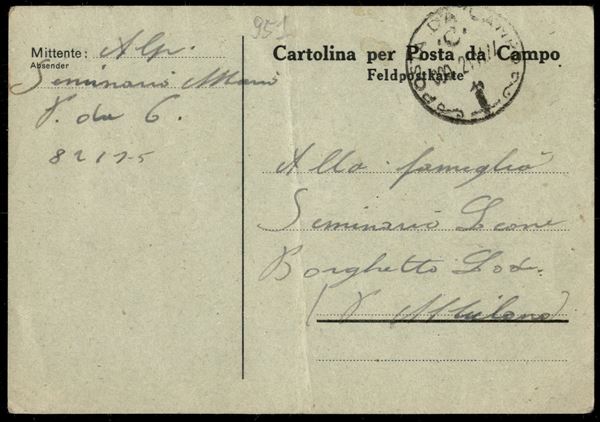 951
Mittente: Alp.
Absender
Seminario Mario
P. da C.
82175
Cartolina per Posta da Campo
Feldpostkarte
POSTA DA CAMPO
Alla famiglia
Seminario Leone
Borghetto Lod.
(P Milano)